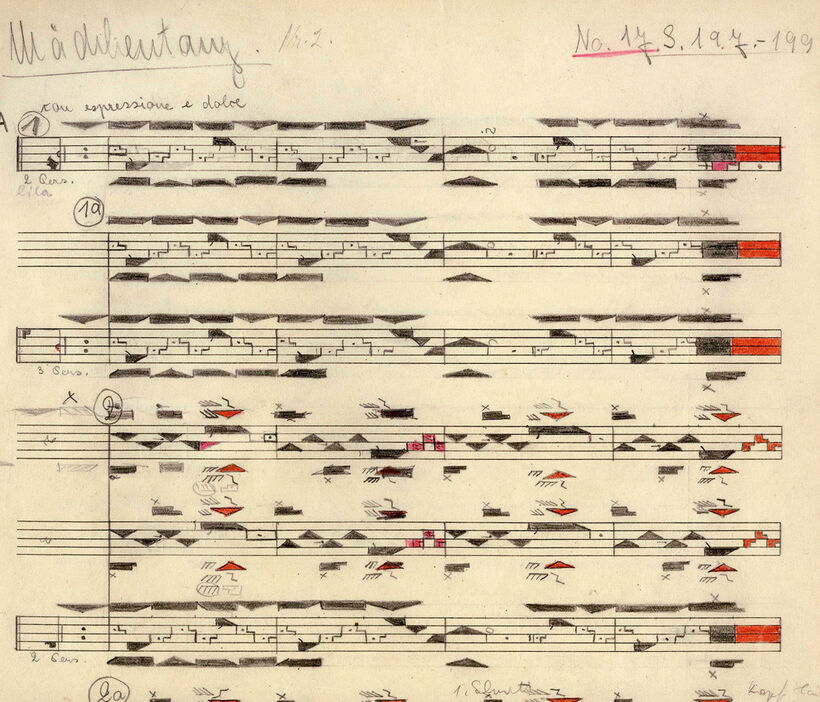 Mädchentanz. Nr. 2.
No. 17. S. 197. - 199
con espressione e dolce
A
1
2 Pers.
lila
1a
3 Pers.
2
2 Pers.
2a
Kopf